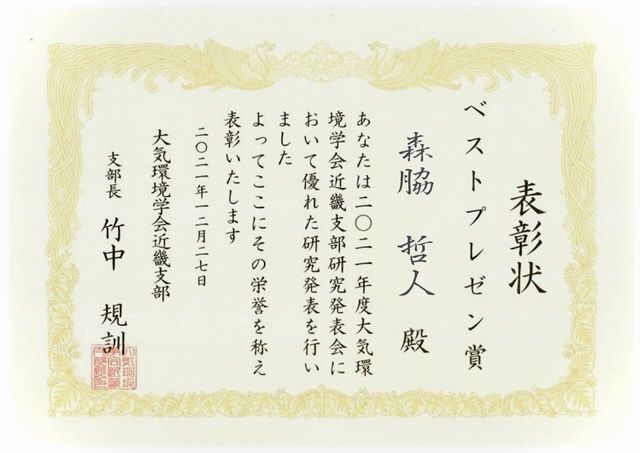 表彰状
ベストプレゼン賞
森脇 哲人 殿
あなたは二〇二一年度大気環
境学会近畿支部研究発表会に
おいて優れた研究発表を行い
ました
よってここにその栄誉を称え
表彰いたします
二〇二一年一二月二七日
大気環境学会近畿支部
支部長 竹中 規訓